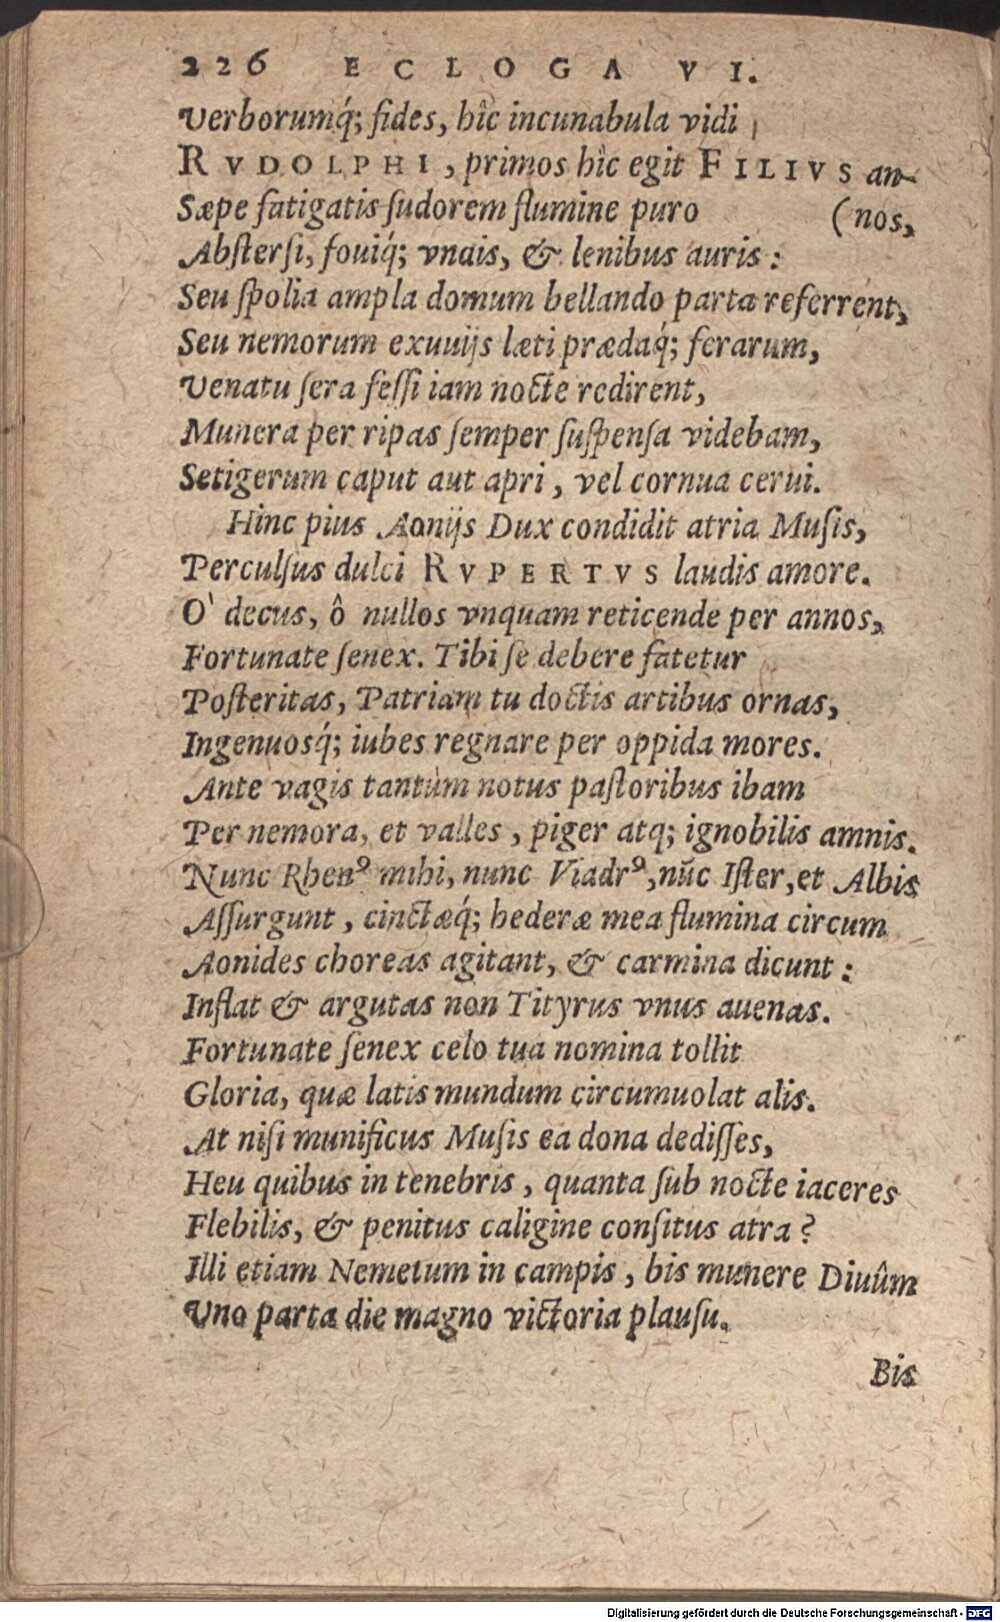 226 ECLOGA VI.
Verborumq́; fides, hîc incunabula vidi
RVDOLPHI, primos hîc egit FILIVS an-
Sæpe fatigatis ſudorem flumine puro (nos,
Abſterſi, fouiq́; vndis, & lenibus auris:
Seu ſpolia ampla domum bellando parta referrent,
Seu nemorum exuuijs læti prædaq́; ferarum,
Venatu ſera feſſi iam nocte redirent,
Munera per ripas ſemper ſuſpenſa videbam,
Setigerum caput aut apri, vel cornua cerui.
Hinc pius Aonijs Dux condidit atria Muſis,
Perculſus dulci RVPERTVS laudis amore.
O' decus, ô nullos vnquam reticende per annos,
Fortunate ſenex. Tibi ſe debere fatetur
Poſteritas, Patriam tu doctis artibus ornas,
Ingenuosq́; iubes regnare per oppida mores.
Ante vagis tantùm notus paſtoribus ibam
Per nemora, et valles, piger atq; ignobilis amnis.
Nunc Rhenꝰ mihi, nunc Viadrꝰ, nūc Iſter, et Albis
Aſſurgunt, cinctæq́; hederæ mea flumina circum
Aonides choreas agitant, & carmina dicunt:
Inflat & argutas non Tityrus vnus auenas.
Fortunate ſenex celo tua nomina tollit
Gloria, quæ latis mundum circumuolat alis.
At niſi munificus Muſis ea dona dediſſes,
Heu quibus in tenebris, quanta ſub nocte iaceres
Flebilis, & penitus caligine conſitus atra?
Illi etiam Nemetum in campis, bis munere Diuûm
Vno parta die magno victoria plauſu.
Bis
Digitalisierung gefördert durch die Deutsche Forschungsgemeinschaft - DFG